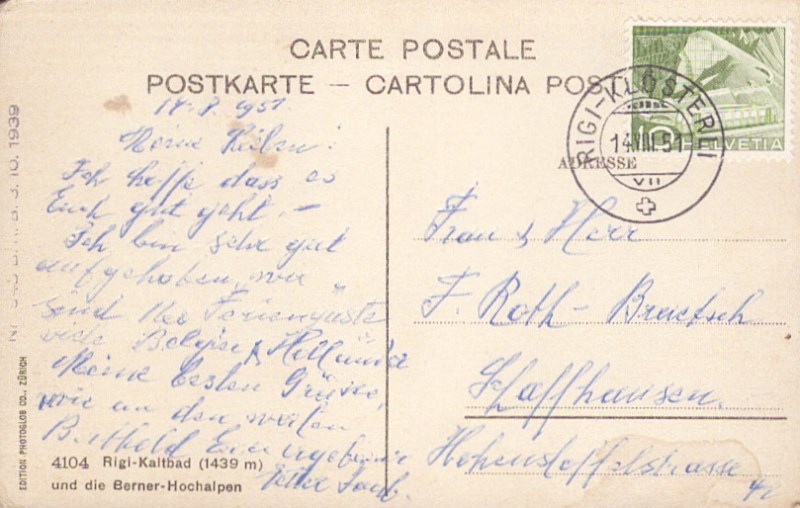 CARTE POSTALE
POSTKARTE — CARTOLINA POST
HELVETIA
10
RIGI-KLÖSTERLI
14.VIII.51
VII
ADRESSE
1951
Meine Lieben!
Ich hoffe dass es
Euch gut geht. —
Ich bin sehr gut
aufgehoben, wir
sind 160 Feriengäste
viele Belgier & Holländer
Meine besten Grüsse,
wie an den werten
Berthold Euer ergebener
Frau & Herr
F. Roth-
Schaffhausen.
Hohenstoffelstrasse
42
4104 Rigi-Kaltbad (1439 m)
und die Berner-Hochalpen
EDITION PHOTOGLOB CO., ZÜRICH
3. 10. 1939